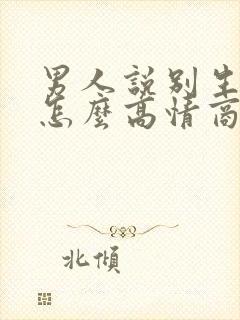 男人說別生
怎麼高情商
北傾